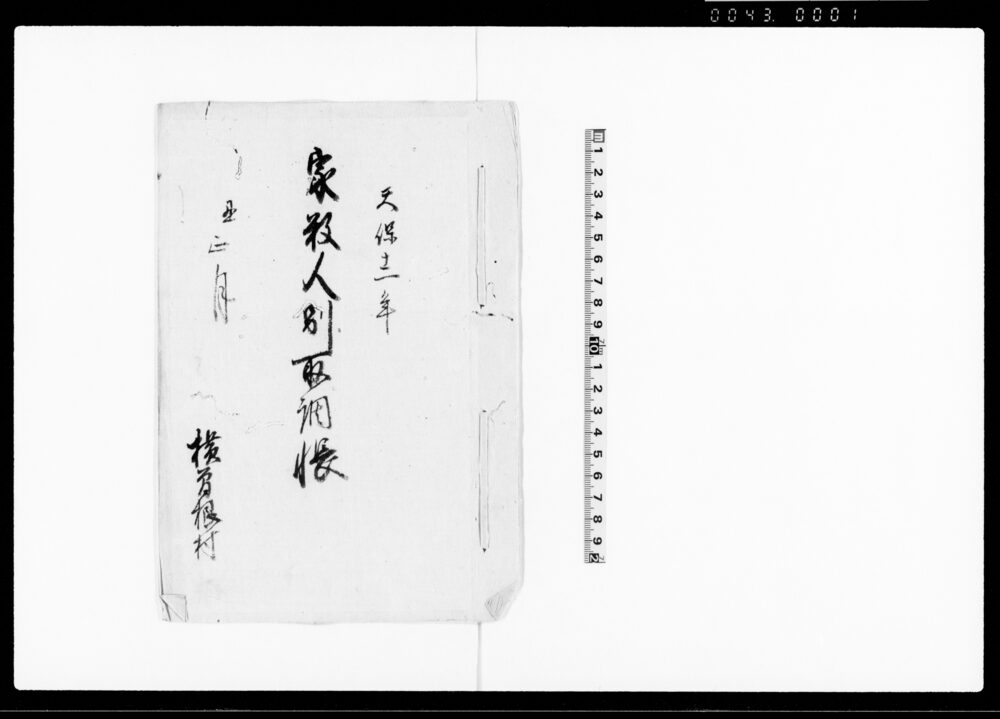 0043. 0001
天保十二年
家数人別取調帳
丑正月
横曽根村
m 1 2 3 4 5 6 7 8 9 10 1 2 3 4 5 6 7 8 9 2